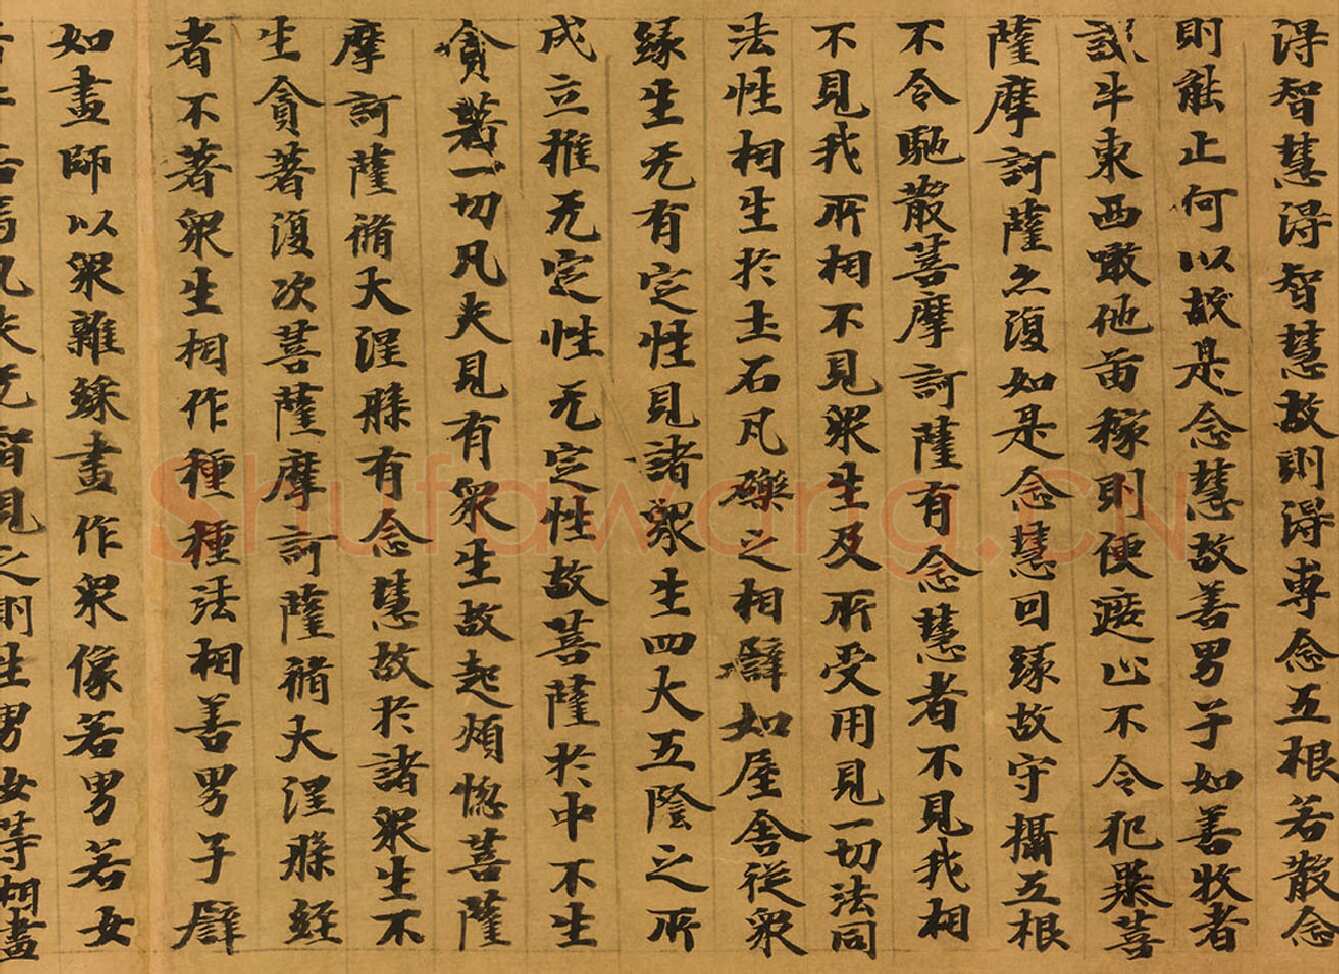 得智慧得智慧故則得專念五根若散念
則能止何以故是念慧故善男子如善牧者
設牛東西噉他苗稼則便遮止不令犯暴菩
薩摩訶薩亦復如是念慧回緣故守攝五根
不令馳散菩摩訶薩有念慧者不見我相
不見我所相不見眾生及所受用見一切法同
法性相生於土石凡礫之相譬如屋舍從眾
緣生无有定性見諸眾生四大五陰之所
成立推无定性无定性故菩薩於中不生
貪著一切凡夫見有眾生故起煩惱菩薩
摩訶薩脩大涅槃有念慧故於諸眾生不
生貪著復次菩薩摩訶薩脩大涅槃經
者不著眾生相作種種法相善男子譬
如畫師以眾雜綵畫作眾像若男若女
若牛若馬凡夫无智見之則生男女等相畫
shufawang.CN